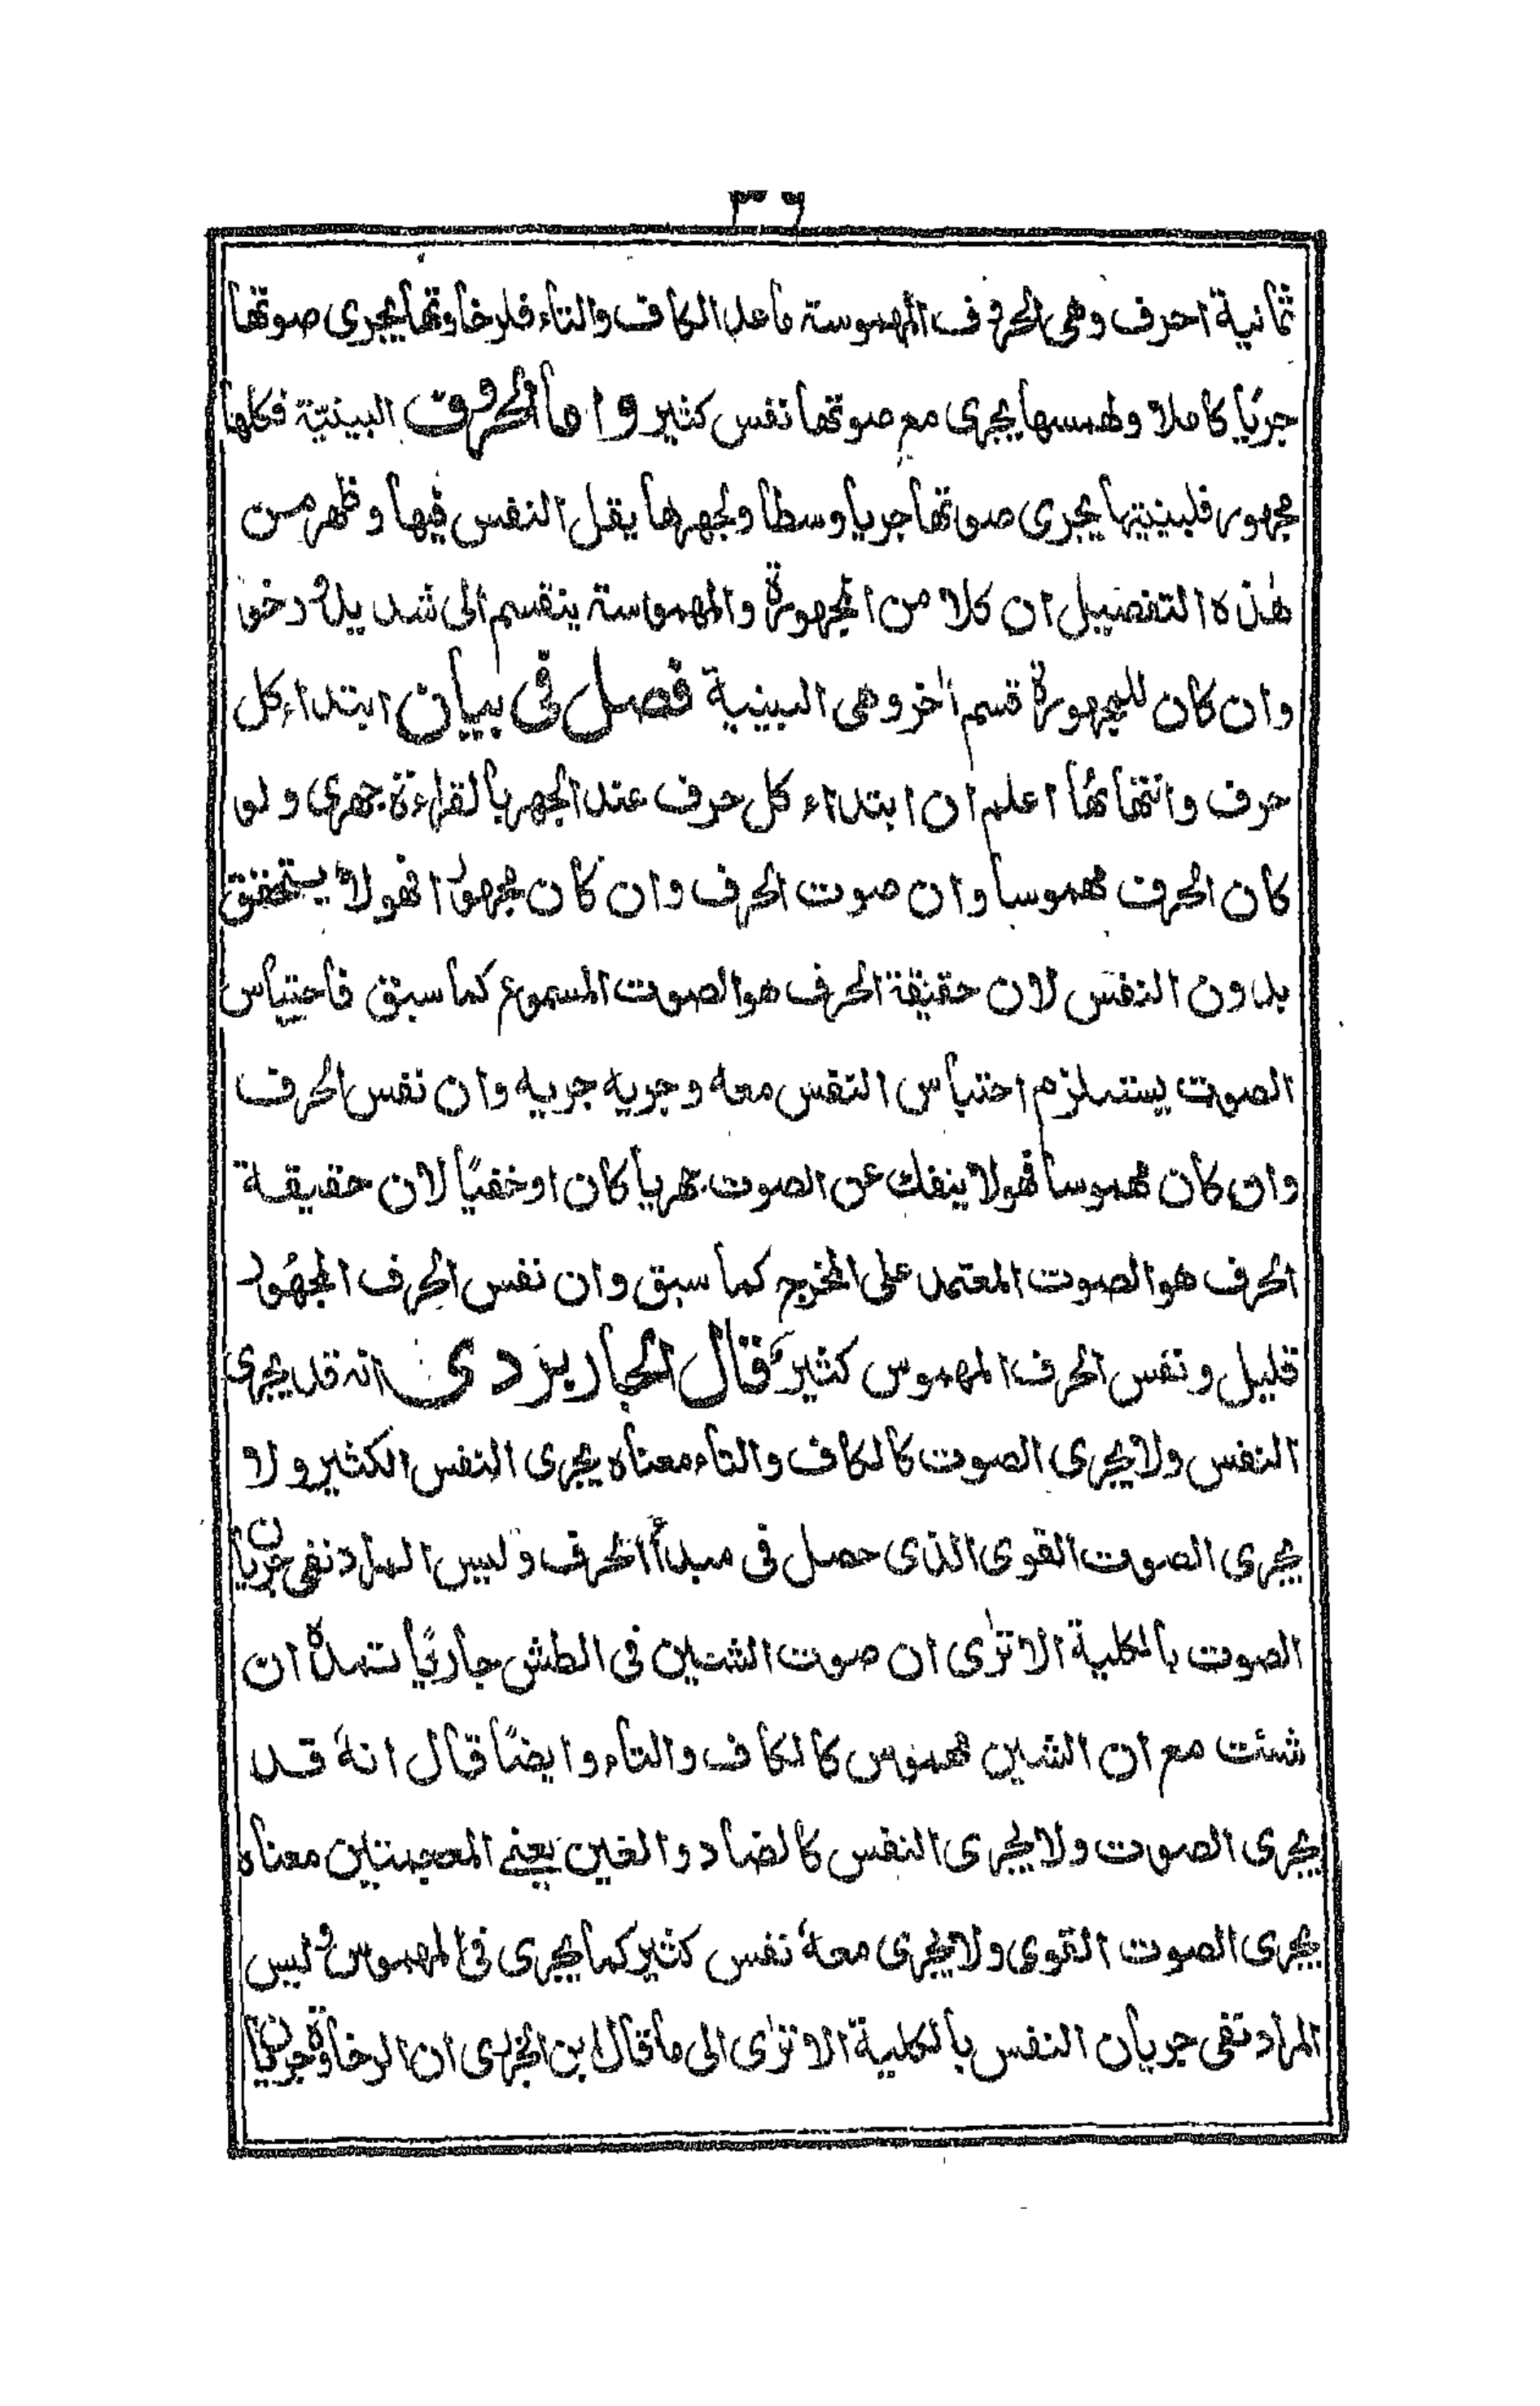 ٣٦
ثمانية احرف وهى الحروف المهموسة ماعدا الكاف والتاء فلرخاوتها يجرى صوتها
جريًا كاملا ولهمسها يجرى مع صوتها نفس كثير واما الحروف البينيّة فكلها
مجهور فلبينيتها يجرى صوتها جريا وسطا ولجهرها يقل النفس فيها وظهر من
هٰذه التفصيل ان كلا من المجهورة والمهموسة ينقسم الى شديد و رخو
وان كان للمجهورة قسم اٰخر وهى البينية فصل فى بيان ابتداء كل
حرف وانتهائها اعلم ان ابتداء كل حرف عند الجهر بالقراءة جهرى ولو
كان الحرف مهموسا وان صوت الحرف وان كان مجهورا فهو لا يتحقق
بدون النفس لان حقيقة الحرف هو الصوت المسموع كما سبق فاحتباس
الصوت يستلزم احتباس النفس معه وجريه جريه وان نفس الحرف
وان كان مهموسا فهو لا ينفك عن الصوت جهريا كان اوخفيًا لان حقيقة
الحرف هو الصوت المعتمد على المخرج كما سبق وان نفس الحرف المجهُور
قليل ونفس الحرف المهموس كثير قال الجاربردى انه قد يجرى
النفس ولا يجرى الصوت كالكاف والتاء معناه يجرى النفس الكثير ولا
يجرى الصوت القوى الذى حصل فى مبدأ الحرف وليس المراد نفى جريان
الصوت بالكلية الا ترٰى ان صوت الشين فى الطش جاريًا تمده ان
شئت مع ان الشين مهموس كالكاف والتاء وايضًا قال انه قد
يجرى الصوت ولا يجرى النفس كالضاد والغين يعنے المعجمتين معناه
يجرى الصوت القوى ولا يجرى معه نفس كثير كما يجرى فى المهموس وليس
المراد نفى جريان النفس بالكلية الا ترٰى الى ما قال ابن الجزرى ان الرخاوة جريان